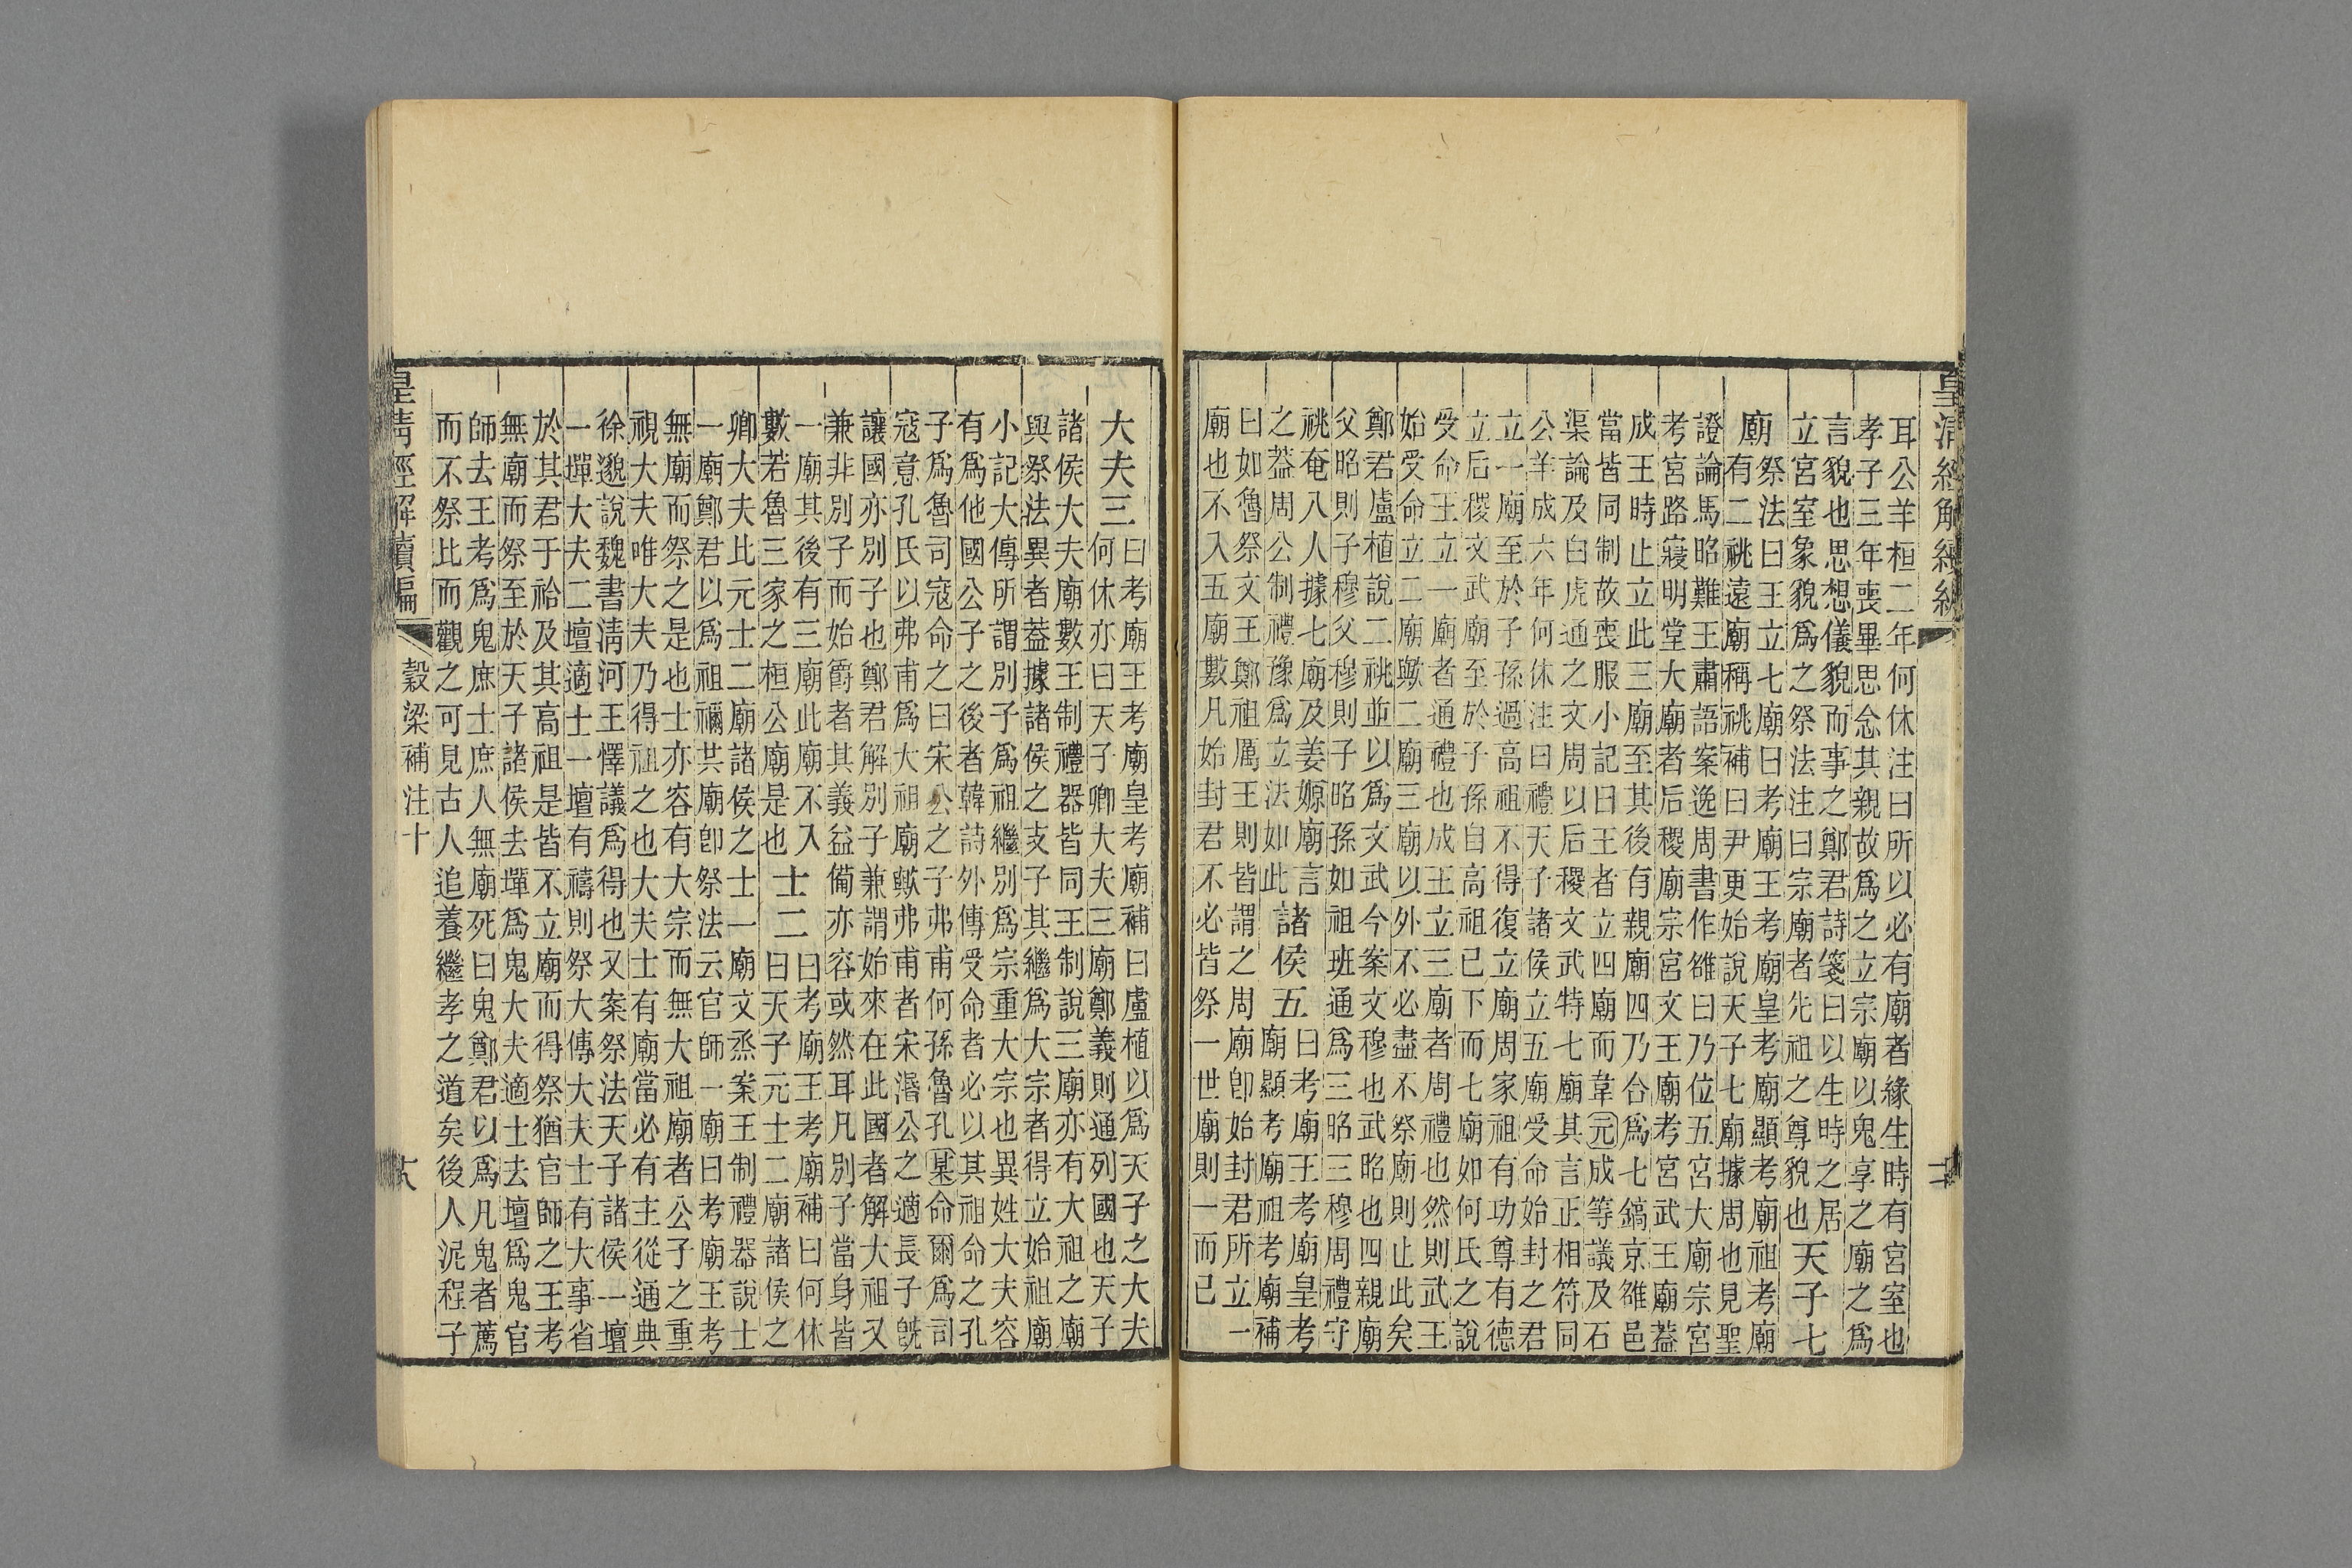 耳公羊桓二年何休注曰所以必有廟者緣生時有宮室也
孝子三年喪畢思念其親故爲之立宗廟以鬼享之廟之爲
言貌也思想儀貌而事之鄭君詩箋曰以生時之居
立宮室象貌爲之祭法注曰宗廟者先祖之尊貌也
天子七
廟
祭法曰王立七廟曰考廟王考廟皇考廟顯考廟祖考廟
有二祧遠廟稱祧補曰尹更始說天子七廟據周也見聖
證論馬昭難王肅語案逸周書作雒曰乃位五宮大廟宗宮
考宮路寢明堂大廟者后稷廟宗宮文王廟考宮武王廟葢
成王時止立此三廟至其後有親廟四乃合爲七鎬京雒邑
當皆同制故喪服小記曰王者立四廟而韋元成等議及石
渠論及白虎通之文周以后稷文武特七廟其言正相符同
公羊成六年何休注曰禮天子諸侯立五廟受命始封之君
立一廟至於子孫過高祖不得復立廟周家祖有功尊有德
立后稷文武廟至於子孫自高祖已下而七廟如何氏之說
受命王立一廟者通禮也成王立三廟者周禮也然則武王
始受命立二廟歟二廟三廟以外不必盡不祭廟則止此矣
鄭君盧植說二祧並以爲文武今案文穆也武昭也四親廟
父昭則子穆父穆則子昭孫如祖班通爲三昭三穆周禮守
祧奄八人據七廟及姜嫄廟言
之葢周公制禮豫爲立法如此
諸侯五
曰考廟王考廟皇考
廟顯考廟祖考廟補
曰如魯祭文王鄭祖厲王則皆謂之周廟卽始封君所立一
廟也不入五廟數凡始封君不必皆祭一世廟則一而已
大夫三
曰考廟王考廟皇考廟補曰盧植以爲天子之大夫
何休亦曰天子卿大夫三廟鄭義則通列國也天子
諸侯大夫廟數王制禮器皆同王制說三廟亦有大祖之廟
與祭法異者葢據諸侯之支子其繼爲大宗者得立始祖廟
小記大傳所謂別子爲祖繼別爲宗重大宗也異姓大夫容
有爲他國公子之後者韓詩外傳受命者必以其祖命之孔
子爲魯司寇命之曰宋公之子弗甫何孫魯孔某命爾爲司
寇意孔氏以弗甫爲大祖廟歟弗甫者宋湣公之適長子旣
讓國亦別子也鄭君解別子兼謂始來在此國者解大祖又
兼非別子而始爵者其義益備亦容或然耳凡別子當身皆
一廟其後有三廟此廟不入
數若魯三家之桓公廟是也
士二
曰考廟王考廟補曰何休
曰天子元士二廟諸侯之
卿大夫比元士二廟諸侯之士一廟文烝案王制禮器說士
一廟鄭君以爲祖禰共廟卽祭法云官師一廟曰考廟王考
無廟而祭之是也士亦容有大宗而無大祖廟者公子之重
視大夫唯大夫乃得祖之也大夫士有廟當必有主從通典
徐邈說魏書淸河王懌議爲得也又案祭法天子諸侯一壇
一墠大夫二壇適士一壇有禱則祭大傳大夫士有大事省
於其君于祫及其高祖是皆不立廟而得祭猶官師之王考
無廟而祭至於天子諸侯去墠爲鬼大夫適士去壇爲鬼官
師去王考爲鬼庶士庶人無廟死曰鬼鄭君以爲凡鬼者薦
而不祭比而觀之可見古人追養繼孝之道矣後人泥程子
皇清經解續編 穀梁補注十